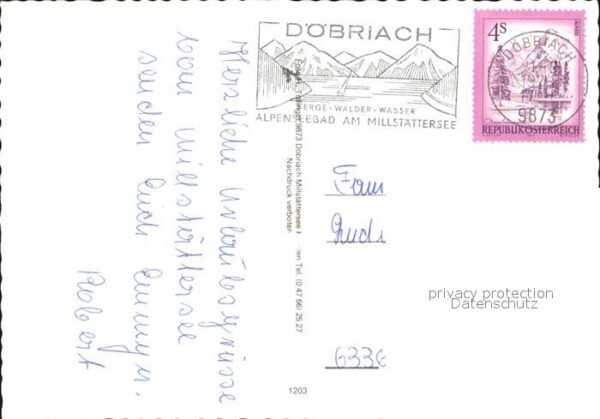 DÖBRIACH
BERGE · WÄLDER · WASSER
ALPENSEEBAD AM MILLSTÄTTERSEE
4S
DÖBRIACH
9873
REPUBLIK ÖSTERREICH
Herzliche Urlaubsgrüsse
vom Millstättersee
senden Euch Emmy u.
Robert
9873 Döbriach Millstättersee
Tel. (0 47 66) 25 27
Nachdruck verboten
Fam
privacy protection
Datenschutz
633
1203